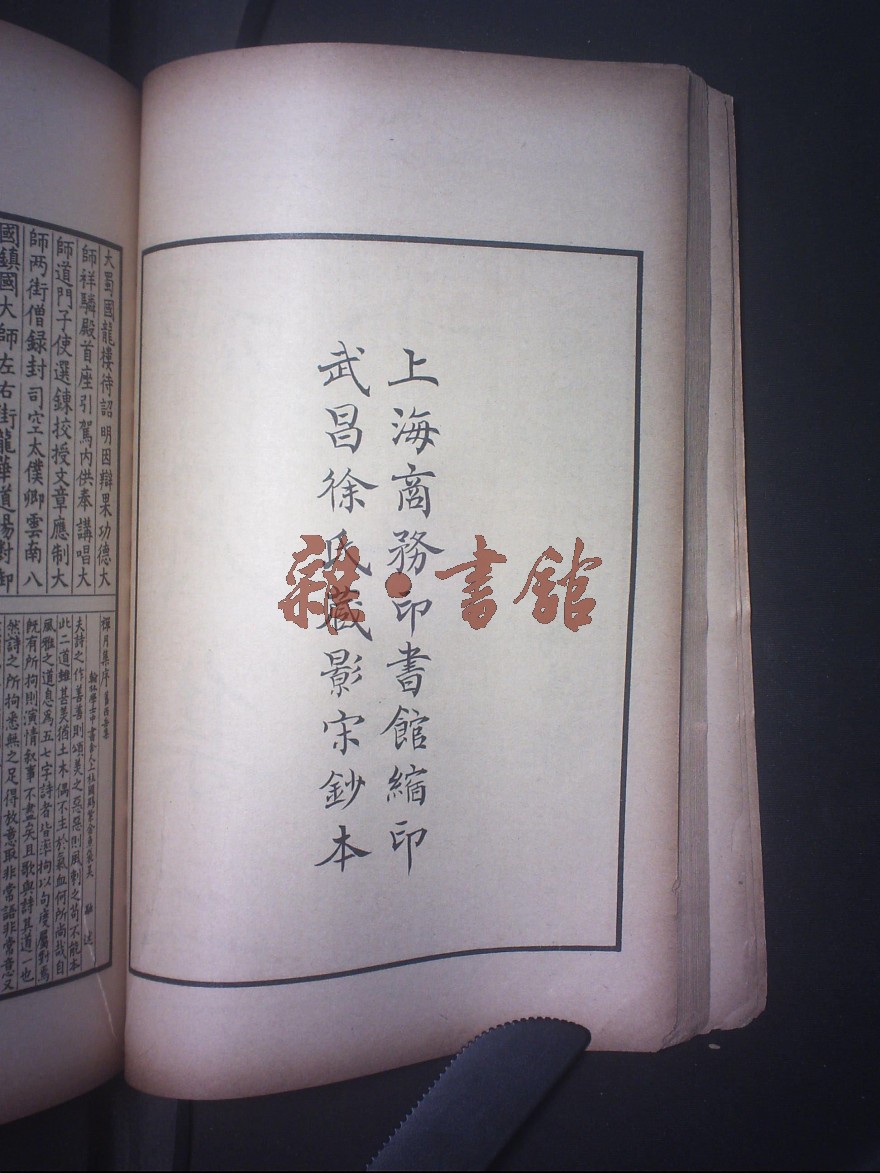 上海商務印書館縮印
武昌徐氏藏影宋鈔本
雜·書館
大蜀國龍樓待詔明因辯果功德大
師祥驎殿首座引駕內供奉講唱大
師道門子使選鍊挍授文章應制大
師两街僧録封司空太僕卿雲南八
國鎮國大師左右街龍華道場對御
禪月集序 舊西岳集
翰林學士中書舍人上柱國賜紫金魚袋吳 融 述
夫詩之作善善則頌美之惡惡則風刺之苟不能本
此二道雖甚美猶土木偶不主於氣血何所尚哉自
風雅之道息爲五七字詩者皆率拘以句度屬對焉
旣有所拘則演情叙事不盡矣且歌與詩其道一也
然詩之所拘悉無之足得放意取非常語非常意又